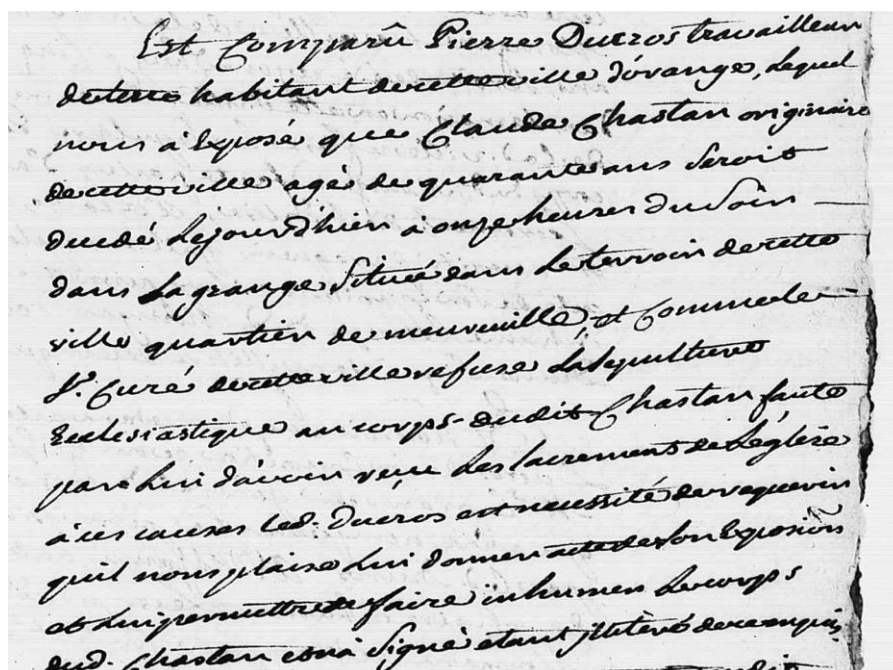 Est Comparû Pierre Ducros travailleur
deterre habitant decette ville d'orange, Lequel
nous à Exposé que Claude Chastan originaire
decette ville agé de quarante ans Seroit
decedé Lejourdhier à onze heures du Soir
dans La grange Situé dans Le terroir decette
ville quartier de meureuille, et Comme le
Sr. Curé decette ville refuse La Sepulture
Ecclesiastique au corps dudit Chastan faute
par Lui d'avoir reçu Les Sacrements de L'églize
à ces causes Led. Ducros est necessité de requerir
quil nous plaise Lui donner acte de son Exposion
et Lui permettre de faire inhumer Le corps
dud. Chastan et n'a Signé etant illiteré de ce enquis